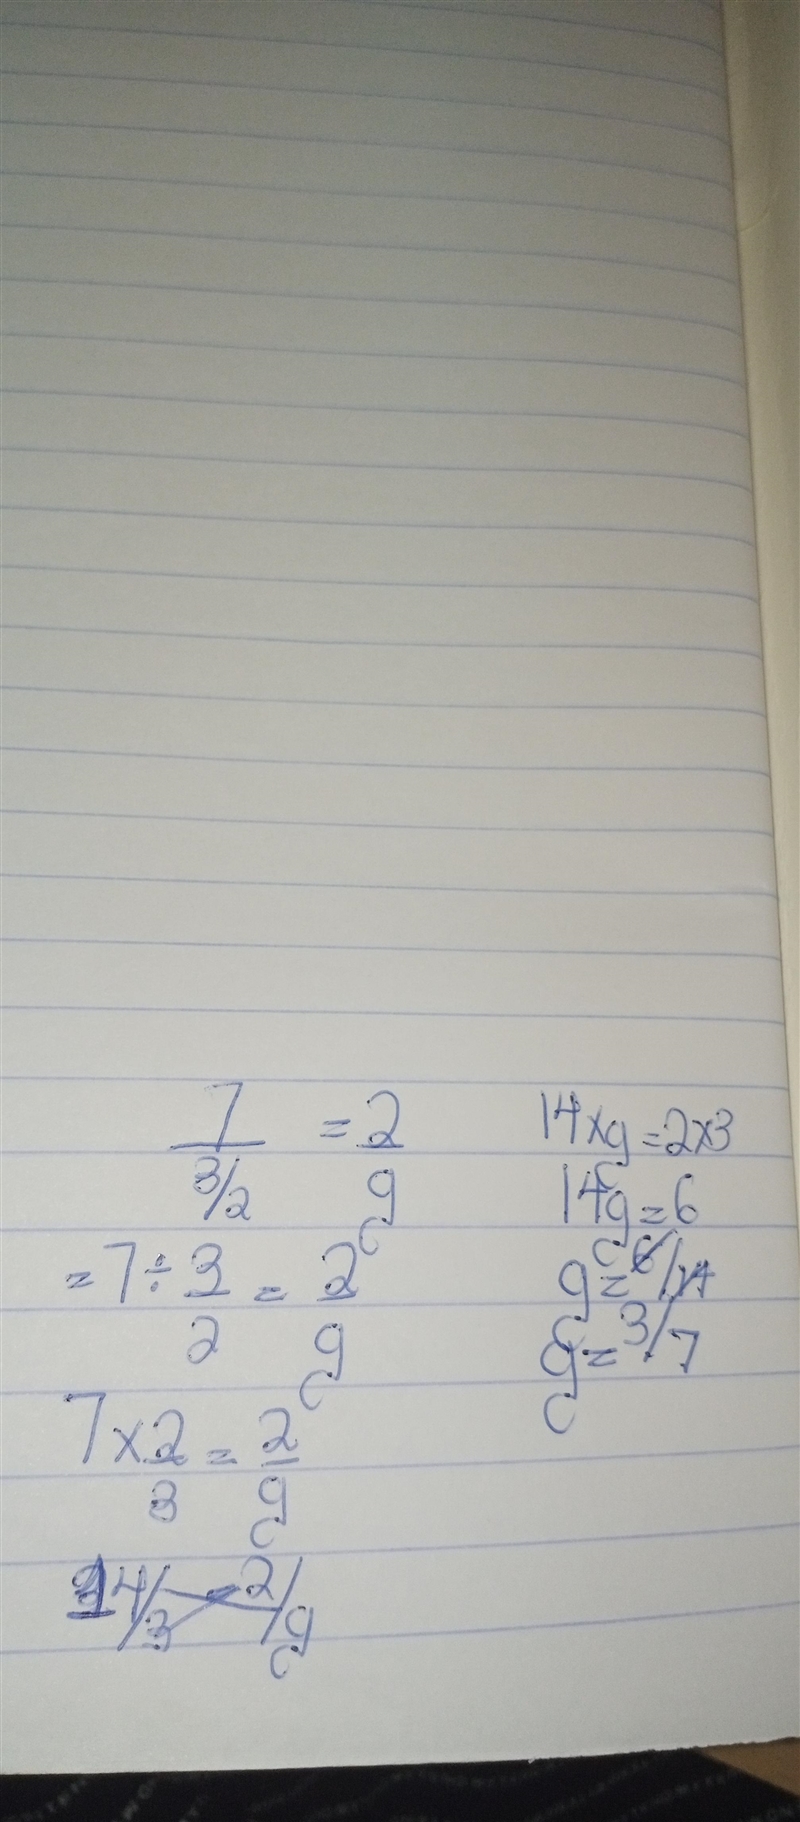 7/(3/2) = 2/g
= 7 ÷ 3/2 = 2/g
7 × 2/3 = 2/g
14/3 = 2/g
14×g = 2×3
14g = 6
g = 6/14
g = 3/7